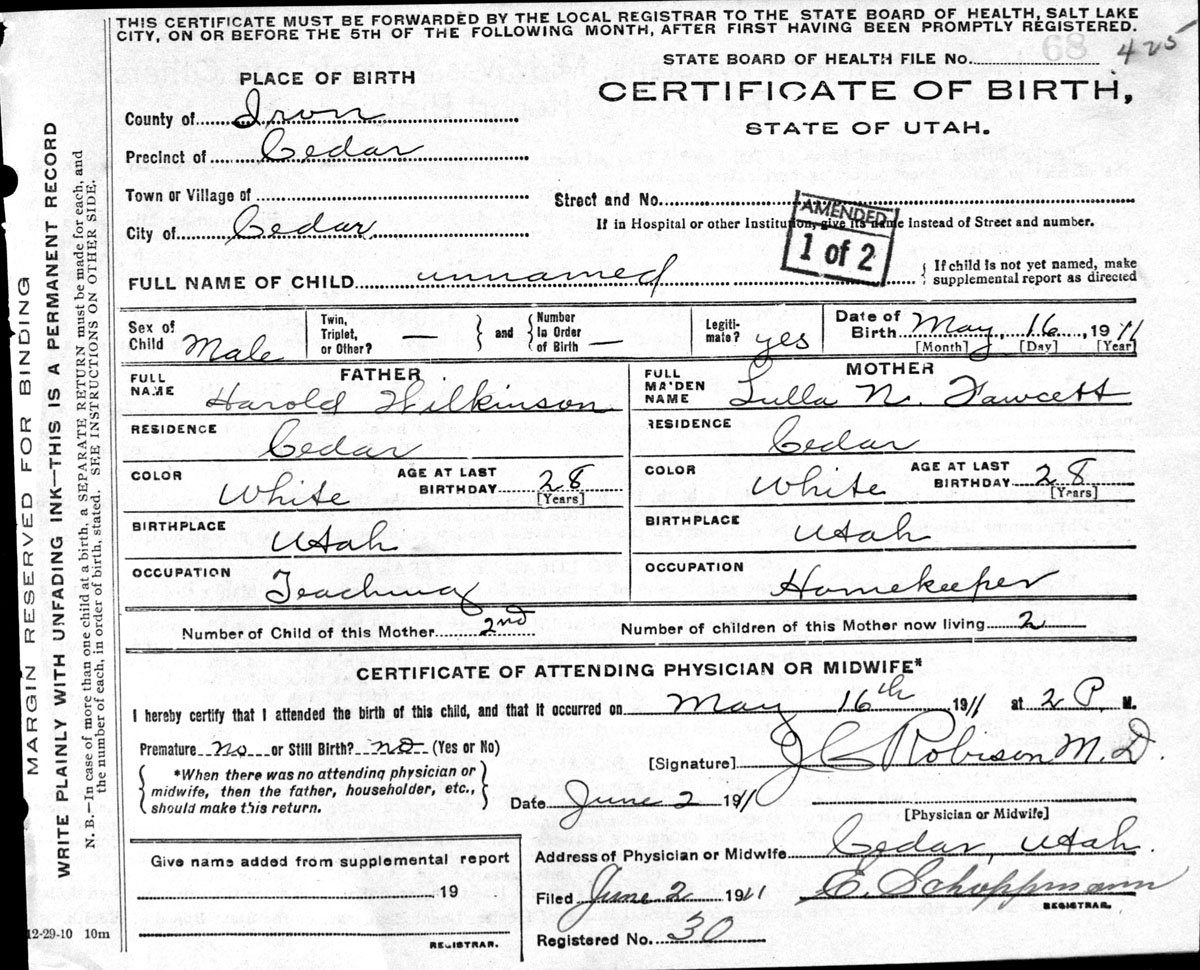 THIS CERTIFICATE MUST BE FORWARDED BY THE LOCAL REGISTRAR TO THE STATE BOARD OF HEALTH, SALT LAKE
CITY, ON OR BEFORE THE 5TH OF THE FOLLOWING MONTH, AFTER FIRST HAVING BEEN PROMPTLY REGISTERED.
68
425
STATE BOARD OF HEALTH FILE No.
PLACE OF BIRTH
CERTIFICATE OF BIRTH,
STATE OF UTAH.
County of Iron
Precinct of Cedar
Town or Village of
Street and No.
City of Cedar
If in Hospital or other Institution, give its name instead of Street and number.
AMENDED
1 of 2
FULL NAME OF CHILD unnamed
If child is not yet named, make
supplemental report as directed
Sex of Child Male
Twin, Triplet, or Other? —
and
Number in Order of Birth —
Legiti-mate? yes
Date of Birth May 16, 1911
[Month] [Day] [Year]
FATHER
FULL NAME Harold Wilkinson
MOTHER
FULL MAIDEN NAME Lulla N. Fawcett
RESIDENCE Cedar
RESIDENCE Cedar
COLOR White
AGE AT LAST BIRTHDAY 28
[Years]
COLOR White
AGE AT LAST BIRTHDAY 28
[Years]
BIRTHPLACE Utah
BIRTHPLACE Utah
OCCUPATION Teaching
OCCUPATION Homekeeper
Number of Child of this Mother 2nd
Number of children of this Mother now living 2
CERTIFICATE OF ATTENDING PHYSICIAN OR MIDWIFE*
I hereby certify that I attended the birth of this child, and that it occurred on May 16th 1911 at 2 P. M.
Premature No or Still Birth? no (Yes or No)
*When there was no attending physician or
midwife, then the father, householder, etc.,
should make this return.
[Signature] J C Robison M.D.
Date June 2 1911
[Physician or Midwife]
Give name added from supplemental report
19
REGISTRAR.
Address of Physician or Midwife Cedar, Utah.
Filed June 2 1911 E. Schoppmann
REGISTRAR.
Registered No. 30
12-29-10 10m
MARGIN RESERVED FOR BINDING
WRITE PLAINLY WITH UNFADING INK—THIS IS A PERMANENT RECORD
N. B.—In case of more than one child at a birth, a SEPARATE RETURN must be made for each, and
the number of each, in order of birth, stated. SEE INSTRUCTIONS ON OTHER SIDE.